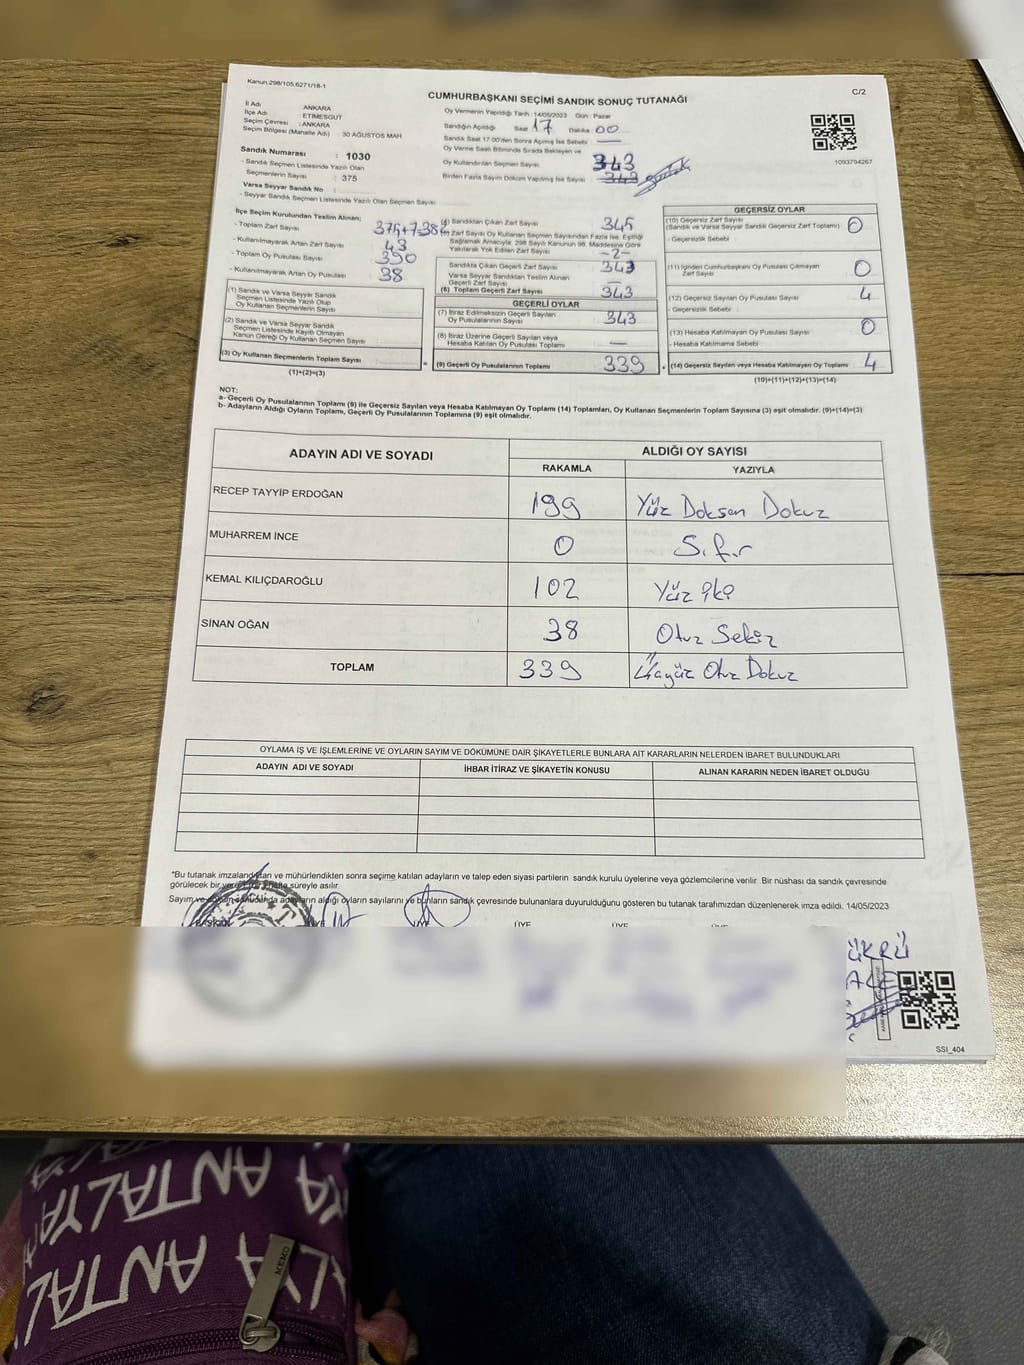 Kanun:298/105,6271/18-1
C/2
CUMHURBAŞKANI SEÇİMİ SANDIK SONUÇ TUTANAĞI
İl Adı : ANKARA
İlçe Adı : ETİMESGUT
Seçim Çevresi : ANKARA
Seçim Bölgesi (Mahalle Adı) : 30 AĞUSTOS MAH
Sandık Numarası : 1030
- Sandık Seçmen Listesinde Yazılı Olan
Seçmenlerin Sayısı : 375
Varsa Seyyar Sandık No :
- Seyyar Sandık Seçmen Listesinde Yazılı Olan Seçmen Sayısı :
Oy Vermenin Yapıldığı Tarih :14/05/2023 Gün : Pazar
Sandığın Açıldığı Saat 17 Dakika 00
Sandık Saat 17:00'den Sonra Açılmış İse Sebebi :
Oy Verme Saati Bitiminde Sırada Bekleyen ve
Oy Kullandırılan Seçmen Sayısı 343
Birden Fazla Sayım Döküm Yapılmış İse Sayısı : 343
1093794267
İlçe Seçim Kurulundan Teslim Alınan;
- Toplam Zarf Sayısı 375+7-382
- Kullanılmayarak Artan Zarf Sayısı 43
- Toplam Oy Pusulası Sayısı 390
- Kullanılmayarak Artan Oy Pusulası 38
(1) Sandık ve Varsa Seyyar Sandık
Seçmen Listesinde Yazılı Olup
Oy Kullanan Seçmenlerin Sayısı
(2) Sandık ve Varsa Seyyar Sandık
Seçmen Listesinde Kayıtlı Olmayan
Kanun Gereği Oy Kullanan Seçmen Sayısı
(3) Oy Kullanan Seçmenlerin Toplam Sayısı
(1)+(2)=(3)
(4) Sandıktan Çıkan Zarf Sayısı 345
(5) Zarf Sayısı Oy Kullanan Seçmen Sayısından Fazla İse, Eşitliği
Sağlamak Amacıyla, 298 Sayılı Kanunun 98. Maddesine Göre
Yakılarak Yok Edilen Zarf Sayısı -2-
Sandıkta Çıkan Geçerli Zarf Sayısı 343
Varsa Seyyar Sandıktan Teslim Alınan
Geçerli Zarf Sayısı —
(6) Toplam Geçerli Zarf Sayısı 343
GEÇERLİ OYLAR
(7) İtiraz Edilmeksizin Geçerli Sayılan
Oy Pusulalarının Sayısı 343
(8) İtiraz Üzerine Geçerli Sayılan veya
Hesaba Katılan Oy Pusulası Toplamı —
(9) Geçerli Oy Pusulalarının Toplamı 339
GEÇERSİZ OYLAR
(10) Geçersiz Zarf Sayısı
(Sandık ve Varsa Seyyar Sandık Geçersiz Zarf Toplamı) 0
- Geçersizlik Sebebi
(11) İçinden Cumhurbaşkanı Oy Pusulası Çıkmayan
Zarf Sayısı 0
(12) Geçersiz Sayılan Oy Pusulası Sayısı 4
- Geçersizlik Sebebi :
(13) Hesaba Katılmayan Oy Pusulası Sayısı 0
- Hesaba Katılmama Sebebi :
(14) Geçersiz Sayılan veya Hesaba Katılmayan Oy Toplamı 4
(10)+(11)+(12)+(13)=(14)
NOT:
a- Geçerli Oy Pusulalarının Toplamı (9) ile Geçersiz Sayılan veya Hesaba Katılmayan Oy Toplamı (14) Toplamları, Oy Kullanan Seçmenlerin Toplam Sayısına (3) eşit olmalıdır. (9)+(14)=(3)
b- Adayların Aldığı Oyların Toplamı, Geçerli Oy Pusulalarının Toplamına (9) eşit olmalıdır.
ADAYIN ADI VE SOYADI
ALDIĞI OY SAYISI
RAKAMLA YAZIYLA
RECEP TAYYİP ERDOĞAN 199 Yüz Doksan Dokuz
MUHARREM İNCE 0 Sıfır
KEMAL KILIÇDAROĞLU 102 Yüz iki
SİNAN OĞAN 38 Otuz Sekiz
TOPLAM 339 Üçyüz Otuz Dokuz
OYLAMA İŞ VE İŞLEMLERİNE VE OYLARIN SAYIM VE DÖKÜMÜNE DAİR ŞİKAYETLERLE BUNLARA AİT KARARLARIN NELERDEN İBARET BULUNDUKLARI
ADAYIN ADI VE SOYADI İHBAR İTİRAZ VE ŞİKAYETİN KONUSU ALINAN KARARIN NEDEN İBARET OLDUĞU
*Bu tutanak imzalandıktan ve mühürlendikten sonra seçime katılan adayların ve talep eden siyasi partilerin sandık kurulu üyelerine veya gözlemcilerine verilir. Bir nüshası da sandık çevresinde
görülecek bir yere bir hafta süreyle asılır.
Sayım ve döküm sonucunda adayların aldığı oyların sayılarını ve bunların sandık çevresinde bulunanlara duyurulduğunu gösteren bu tutanak tarafımızdan düzenlenerek imza edildi. 14/05/2023
BAŞKAN ÜYE ÜYE ÜYE ÜYE
ÜKRÜ
ALE
SSI_404
ANTALYA
ANTALYA
MEMO